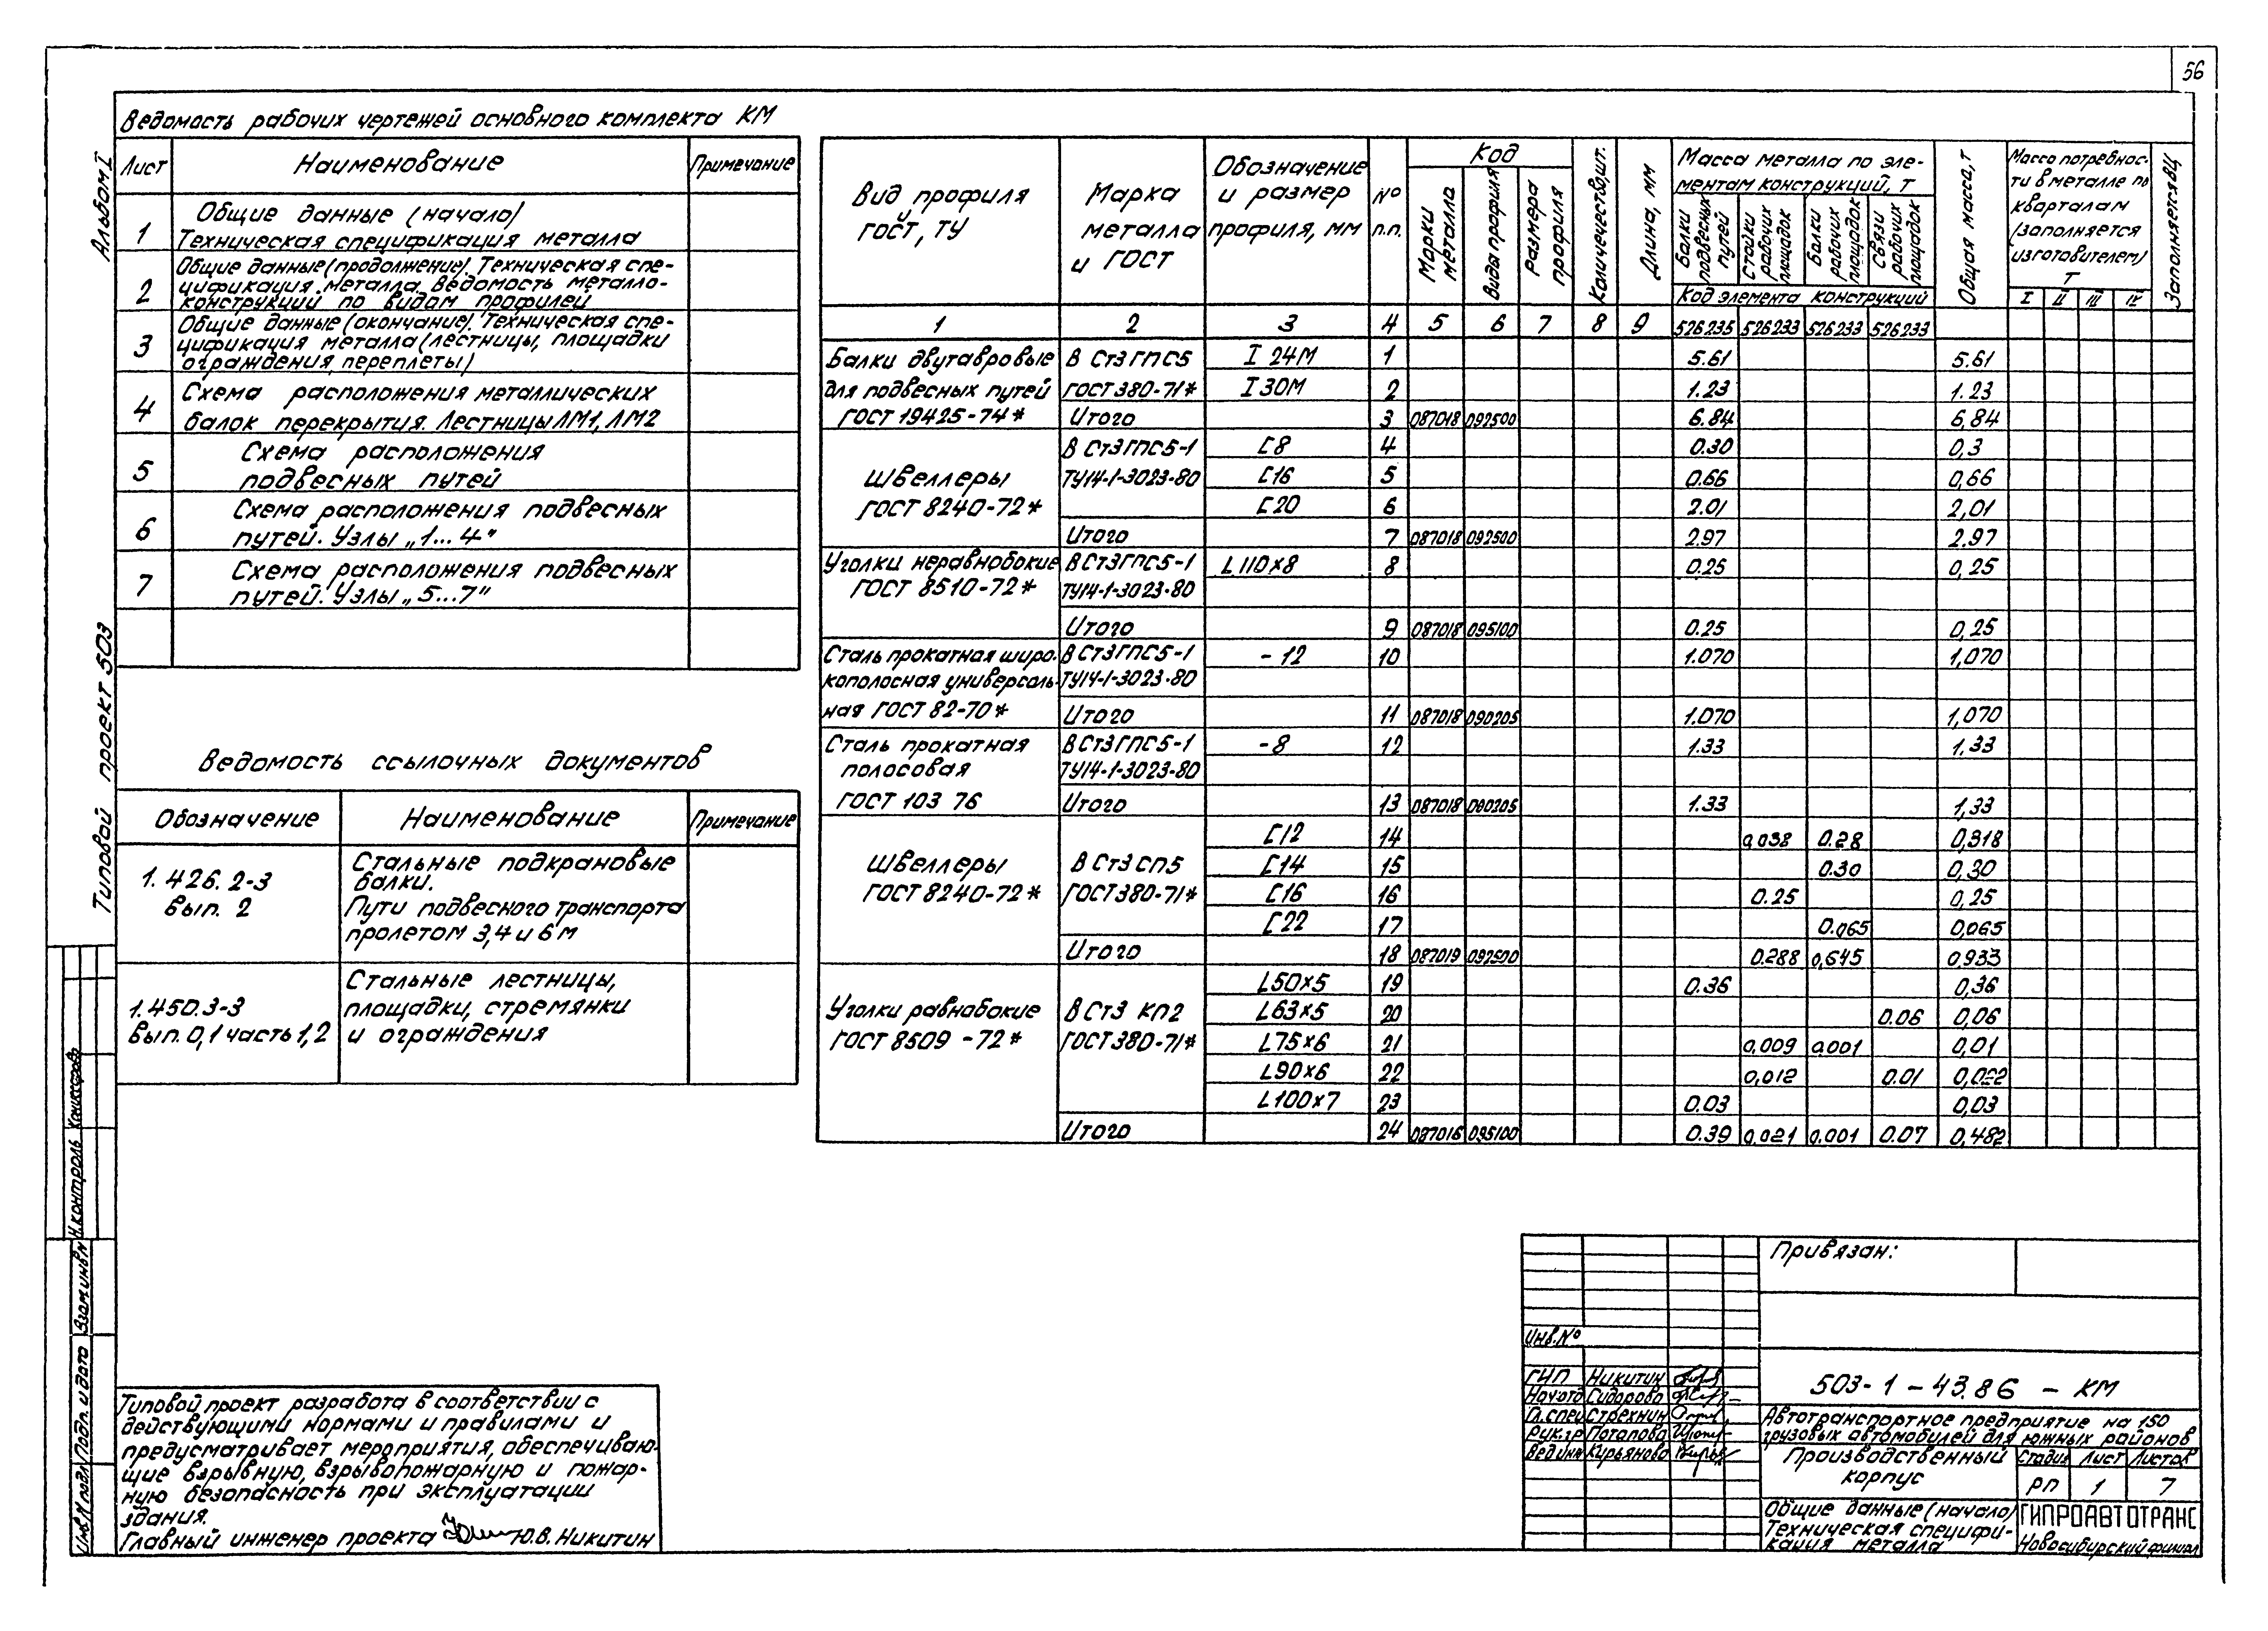 56
Альбом I
Типовой проект 503
Ведомость рабочих чертежей основного комплекта КМ
Лист Наименование Примечание
1 Общие данные (начало)
Техническая спецификация металла
2 Общие данные (продолжение). Техническая спе-
цификация металла. Ведомость металло-
конструкций по видам профилей
3 Общие данные (окончание). Техническая спе-
цификация металла (лестницы, площадки
ограждения, переплеты)
4 Схема расположения металлических
балок перекрытия. Лестницы ЛМ1, ЛМ2
5 Схема расположения
подвесных путей
6 Схема расположения подвесных
путей. Узлы „1...4"
7 Схема расположения подвесных
путей. Узлы „5...7"
Ведомость ссылочных документов
Обозначение Наименование Примечание
1.426.2-3
вып. 2
Стальные подкрановые
балки.
Пути подвесного транспорта
пролетом 3,4 и 6 м
1.450.3-3
Вып. 0,1 часть 1,2
Стальные лестницы,
площадки, стремянки
и ограждения
Вид профиля
и
ГОСТ, ТУ
Марка
металла
и ГОСТ
Обозначение
и размер
профиля, мм
№
п.п.
Код
Марки металла
Виды профиля
Размера профиля
Количество, шт.
Длина, мм
Масса металла по эле-
ментам конструкций, Т
Балки подвесных путей
Стойки рабочих площадок
Балки рабочих площадок
Связи рабочих площадок
Код элемента конструкций
Общая масса, т
Масса потребнос-
ти в металле по
кварталам
(заполняется
изготовителем)
Т
I II III IV
Заполняется ВЦ
1 2 3 4 5 6 7 8 9 526235 526233 526233 526233
Балки двутавровые В Ст3ГПС5 I 24М 1 5.61 5.61
для подвесных путей ГОСТ 380-71* I 30М 2 1.23 1.23
ГОСТ 19425-74* Итого 3 087018 092500 6.84 6,84
В Ст3ГПС5-1 [8 4 0.30 0,3
Швеллеры ТУ14-1-3023-80 [16 5 0.66 0,66
ГОСТ 8240-72* [20 6 2.01 2,01
Итого 7 087018 092500 2.97 2.97
Уголки неравнобокие В Ст3ГПС5-1 L110×8 8 0.25 0,25
ГОСТ 8510-72* ТУ14-1-3023-80
Итого 9 087018 095100 0.25 0,25
Сталь прокатная широ- В Ст3ГПС5-1 -12 10 1.070 1,070
кополосная универсаль- ТУ14-1-3023-80
ная ГОСТ 82-70* Итого 11 087018 090205 1.070 1,070
Сталь прокатная В Ст3ГПС5-1 -8 12 1.33 1.33
полосовая ТУ14-1-3023-80
ГОСТ 103 76 Итого 13 087018 1.33 1,33
[12 14 0,038 0.28 0,318
Швеллеры В Ст3СП5 [14 15 0.30 0,30
ГОСТ 8240-72* ГОСТ 380-71* [16 16 0.25 0,25
[22 17 0.065 0,065
Итого 18 087019 092500 0.288 0,645 0,933
L50×5 19 0.36 0,36
Уголки равнобокие В Ст3 КП2 L63×5 20 0.06 0,06
ГОСТ 8509-72* ГОСТ 380-71* L75×6 21 0,009 0,001 0,01
L90×6 22 0,012 0.01 0,022
L100×7 23 0.03 0,03
Итого 24 087016 095100 0.39 0,021 0,001 0.07 0,482
Н.контроль
Взам инв №
Подп. и дата
Инв № подл
Типовой проект разработа в соответствии с
действующими нормами и правилами и
предусматривает мероприятия, обеспечиваю-
щие взрывную, взрывопожарную и пожар-
ную безопасность при эксплуатации
здания.
Главный инженер проекта Ю.В. Никитин
Привязан:
Инв.№
ГИП Никитин
Нач отд Сидорова
Гл.спец Стрехнин
Рук.гр Потапова
Вед инж Кирьянова
503-1-43.86 - КМ
Автотранспортное предприятие на 150
грузовых автомобилей для южных районов
Производственный
корпус
Стадия Лист Листов
РП 1 7
Общие данные (начало)
Техническая специфи-
кация металла
ГИПРОАВТОТРАНС
Новосибирский филиал